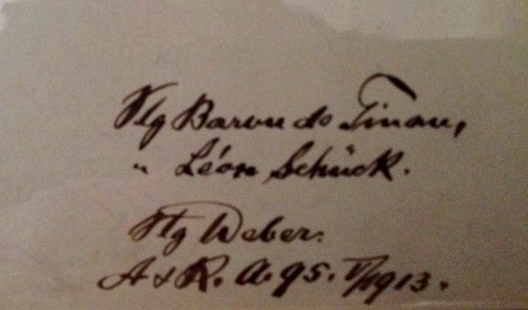 Slg Baron de Tinan,
" Léon Schück.
Slg Weber.
A & R. A. 95. V/1913.